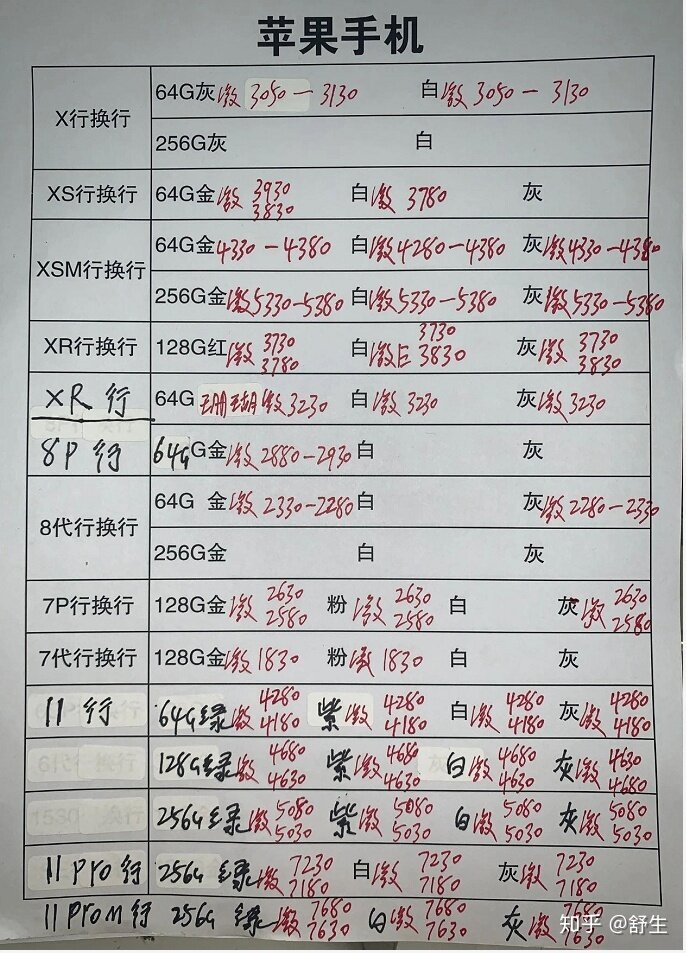 苹果手机
X行换行 64G灰 激 3050一3130 白 激 3050一3130
256G灰 白
XS行换行 64G金 激 3930 3830 白 激 3780 灰
XSM行换行 64G金 4330一4380 白 激 4280一4380 灰 激 4330一4380
256G金 激 5330一5380 白 激 5330一5380 灰 激 5330一5380
XR行换行 128G红 激 3730 3780 白 激 3730 3830 灰 激 3730 3830
XR 行 64G 珊瑚 激 3230 白 激 3230 灰 激 3230
8P 行 64G G金 激 2880一2930 白 灰
8代行换行 64G 金 激 2330一2280 白 灰 激 2280一2330
256G金 白 灰
7P行换行 128G金 激 2630 2580 粉 激 2630 2580 白 灰 激 2630 2580
7代行换行 128G金 激 1830 粉 激 1830 白 灰
11 行 64G 绿 激 4280 4180 紫 激 4280 4180 白 激 4280 4180 灰 激 4280 4180
128G 绿 激 4680 4630 紫 激 4680 4630 白 激 4680 4630 灰 激 4630 4680
256G 绿 激 5080 5030 紫 激 5080 5030 白 激 5080 5030 灰 激 5080 5030
11 Pro 行 256G 绿 激 7230 7180 白 激 7230 7180 灰 激 7230 7180
11 Pro M 行 256G 绿 激 7680 7630 白 激 7680 7630 灰 激 7680 7630
知乎 @舒生